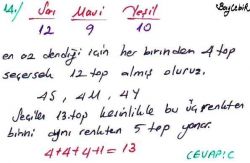 14) Sarı Mavi Yeşil
12 9 10
en az dendiği için her birinden 4 top
seçersek 12 top almış oluruz.
4S, 4M, 4Y
Seçilen 13.top kesinlikle bu üç renkten
birini aynı renkten 5 top yapar.
4+4+4+1=13
CEVAP:C